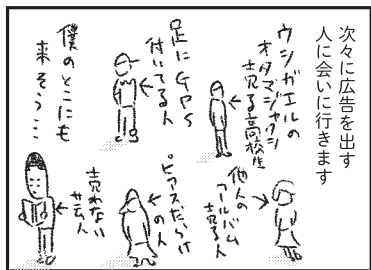 次々に広告を出す
人に会いに行きます
ウシガエルの
オタマジャクシ
売る高校生
足にGPS
付いてる人
僕のとこにも
来そう…
他人の
アルバム
売る人
ピアスだらけ
の人
売れない
芸人